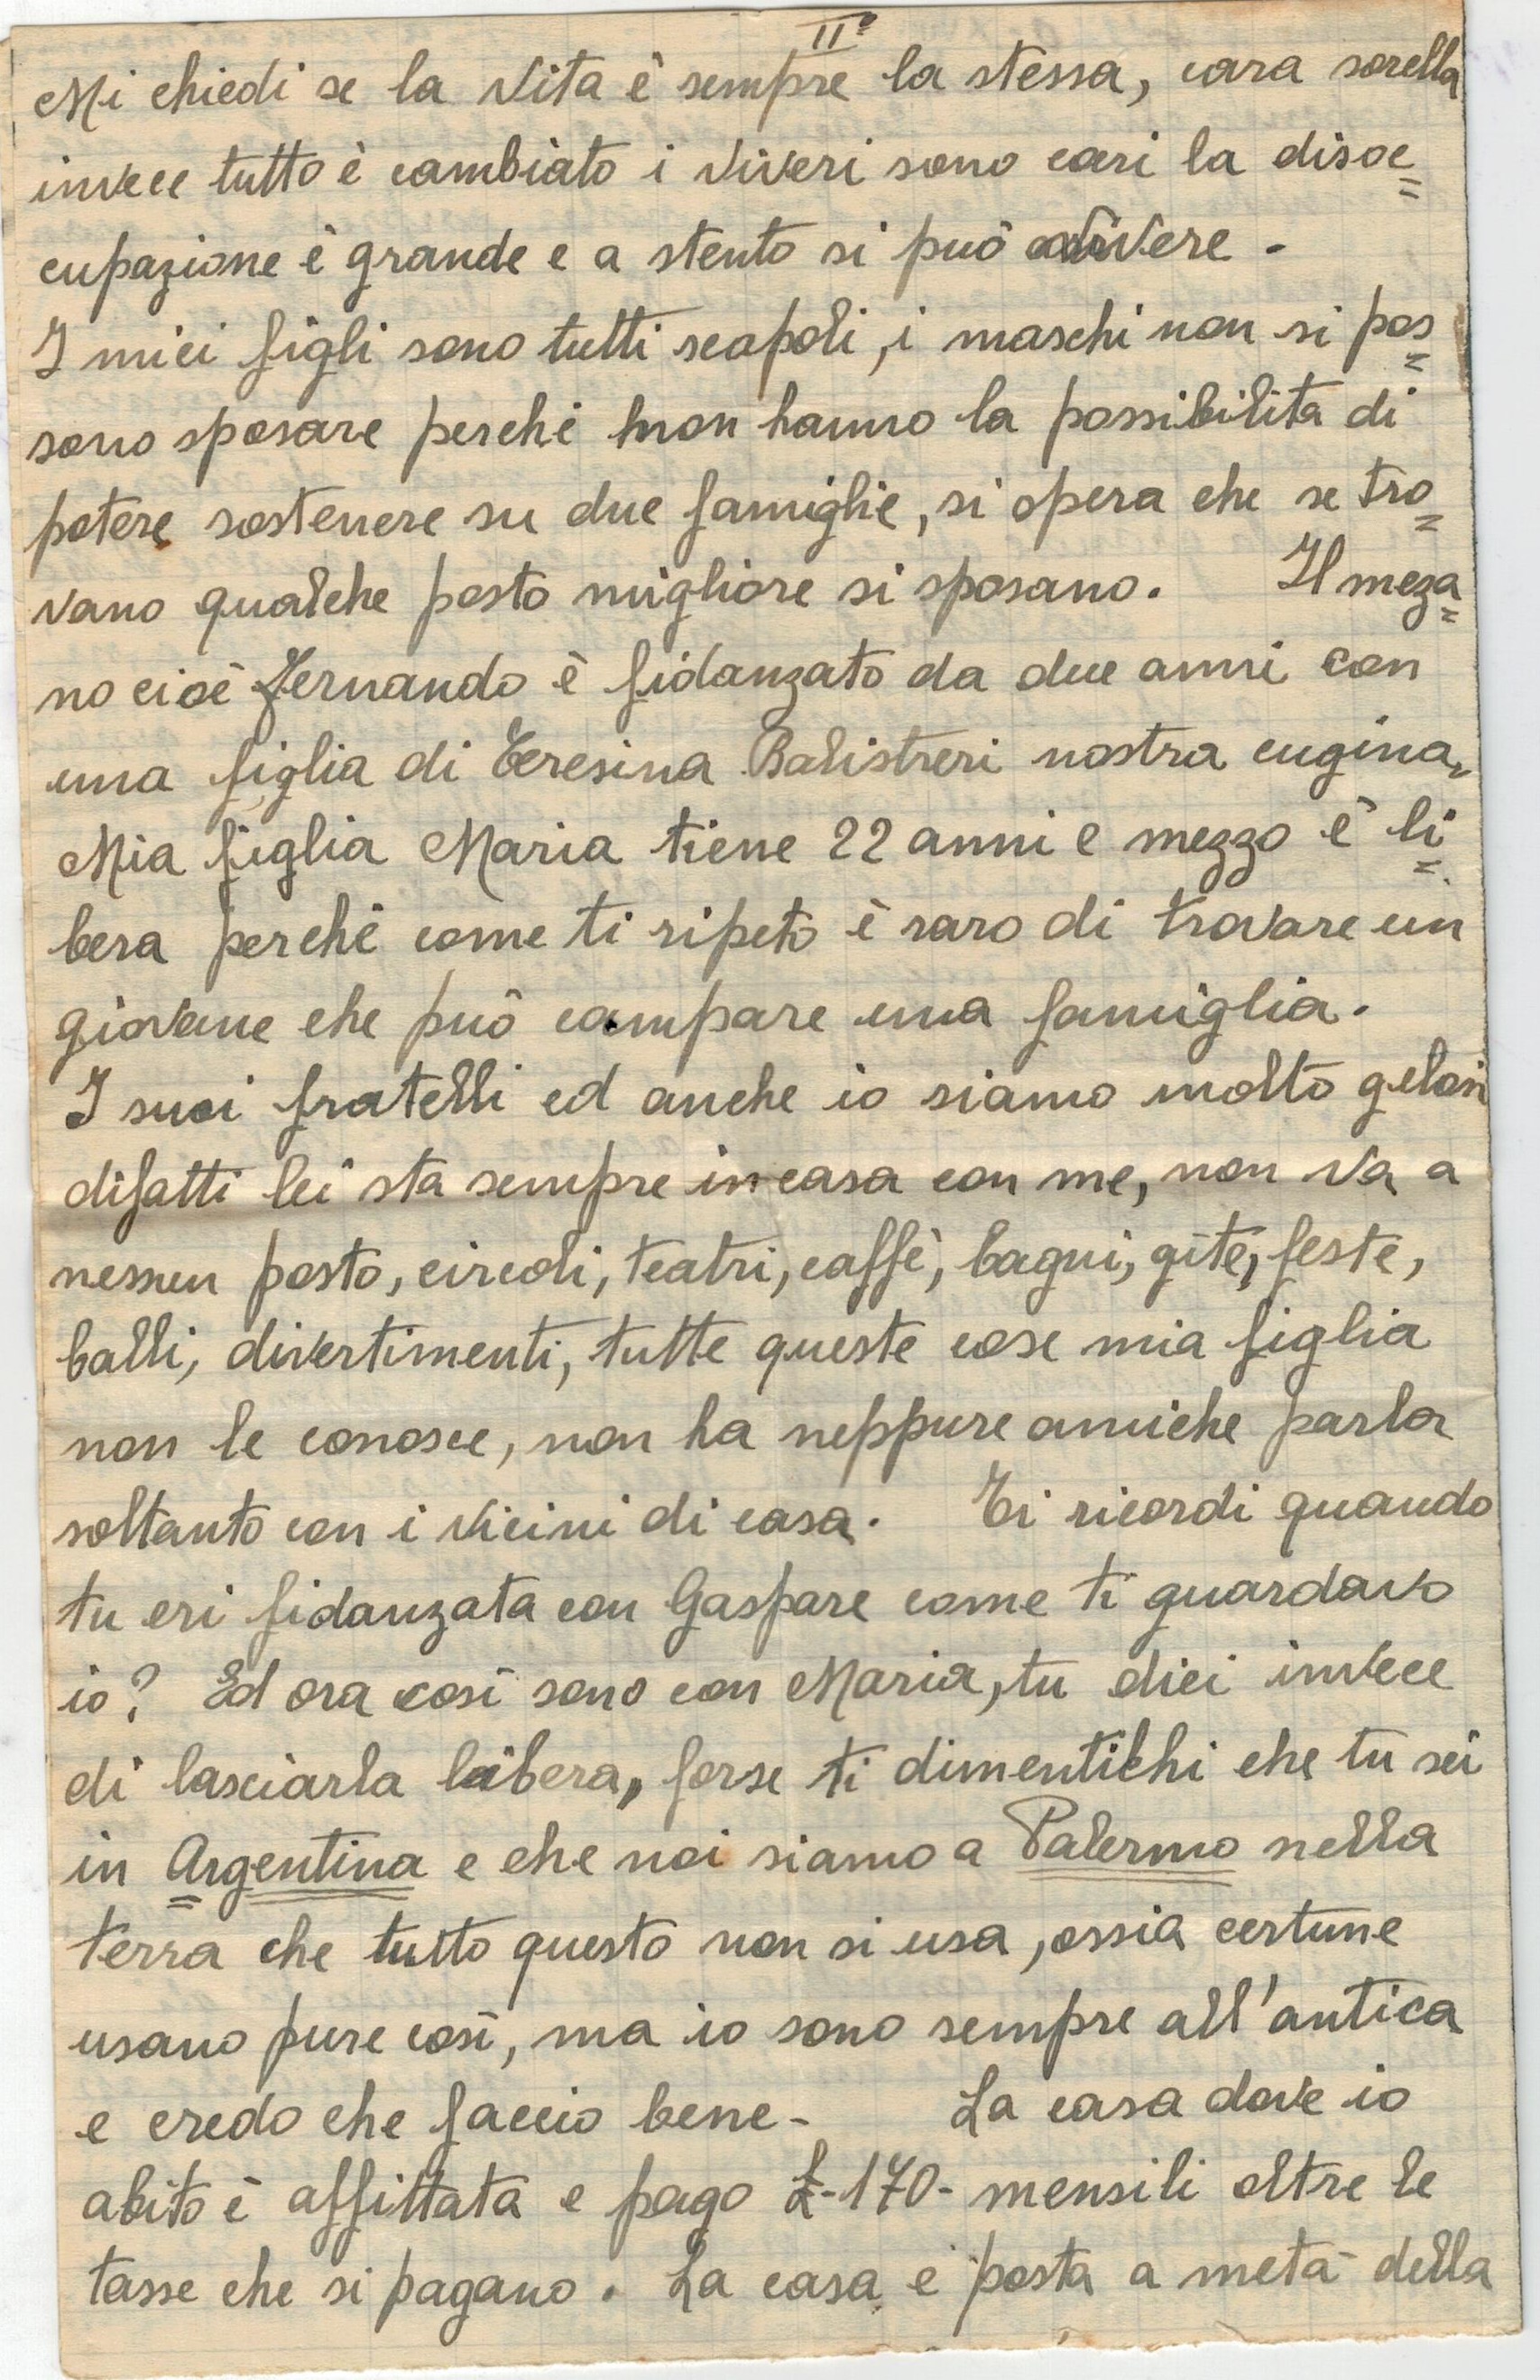 II°
Mi chiedi se la vita è sempre la stessa, cara sorella
invece tutto è cambiato i viveri sono cari la disoc=
cupazione è grande e a stento si può vivere -
I miei figli sono tutti scapoli, i maschi non si pos=
sono sposare perché non hanno la possibilità di
potere sostenere su due famiglie, si spera che se tro=
vano qualche posto migliore si sposano. Il meza=
no cioè Fernando è fidanzato da due anni con
una figlia di Teresina Balistreri nostra cugina,
Mia figlia Maria tiene 22 anni e mezzo è li=
bera perché come ti ripeto è raro di trovare un
giovane che può campare una famiglia.
I suoi fratelli ed anche io siamo molto gelosi
difatti lei sta sempre in casa con me, non va a
nessun posto, circoli, teatri, caffè, bagni, gite, feste,
balli, divertimenti, tutte queste cose mia figlia
non le conosce, non ha neppure amiche parla
soltanto con i vicini di casa. Ti ricordi quando
tu eri fidanzata con Gaspare come ti guardavo
io? Ed ora così sono con Maria, tu dici invece
di lasciarla libera, forse ti dimentichi che tu sei
in Argentina e che noi siamo a Palermo nella
terra che tutto questo non si usa, ossia certune
usano pure così, ma io sono sempre all'antica
e credo che faccio bene - La casa dove io
abito è affittata e pago £-170- mensili oltre le
tasse che si pagano. La casa è posta a metà della